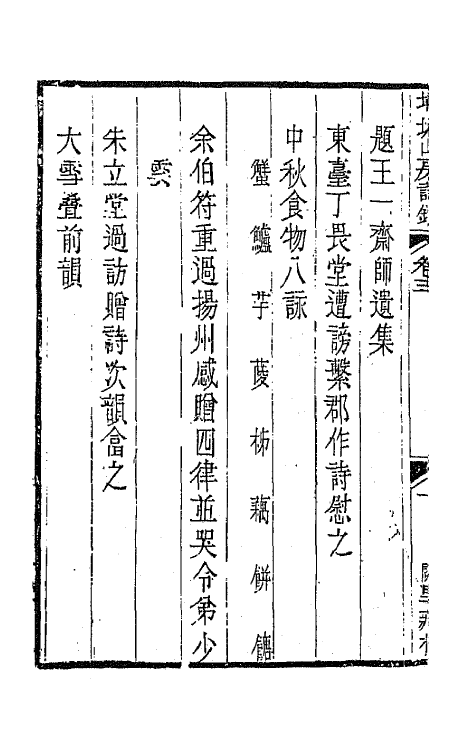 卷三
題王一齋師遺集
東臺丁畏堂遭謗繫郡作詩慰之
中秋食物八詠
蟹 鱸 芋 菱 柿 藕 餅 餹
余伯符重過揚州感贈四律並哭令弟少
雲
朱立堂過訪贈詩次韻畣之
大雪疊前韻